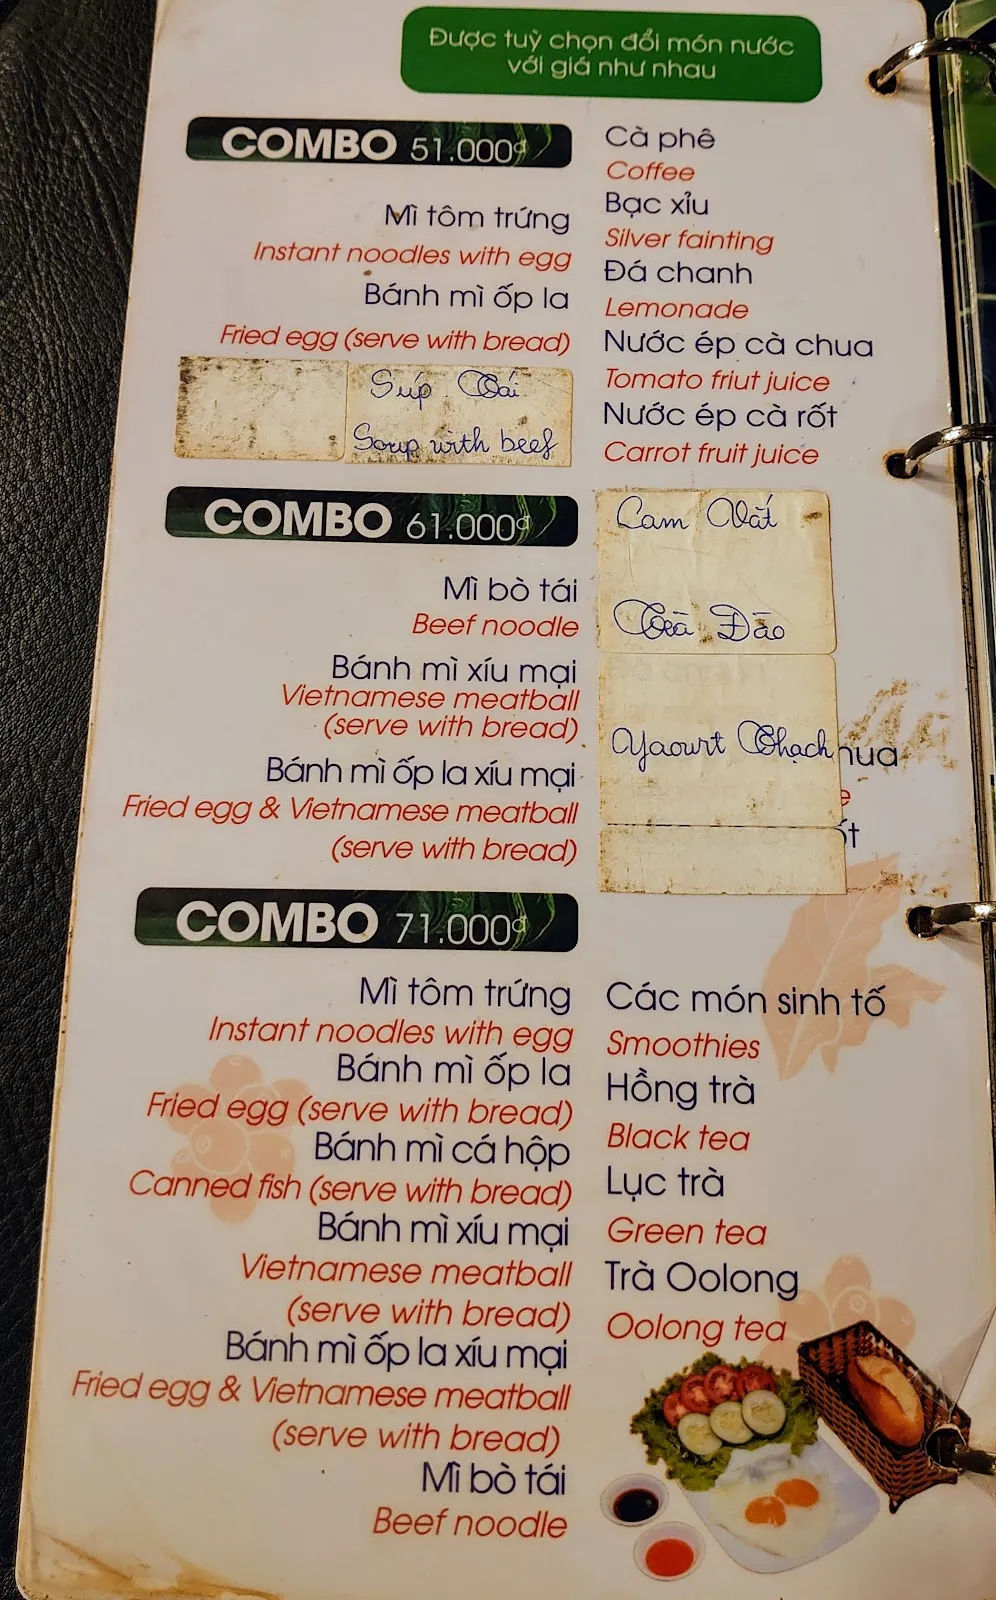 Được tuỳ chọn đổi món nước
với giá như nhau
COMBO 51.000đ
Mì tôm trứng
Instant noodles with egg
Bánh mì ốp la
Fried egg (serve with bread)
Súp
Soup with beef
Cà phê
Coffee
Bạc xỉu
Silver fainting
Đá chanh
Lemonade
Nước ép cà chua
Tomato friut juice
Nước ép cà rốt
Carrot fruit juice
COMBO 61.000đ
Mì bò tái
Beef noodle
Bánh mì xíu mại
Vietnamese meatball
(serve with bread)
Bánh mì ốp la xíu mại
Fried egg & Vietnamese meatball
(serve with bread)
Cam Vắt
Trà Đào
Yaourt Thạch
COMBO 71.000đ
Mì tôm trứng
Instant noodles with egg
Bánh mì ốp la
Fried egg (serve with bread)
Bánh mì cá hộp
Canned fish (serve with bread)
Bánh mì xíu mại
Vietnamese meatball
(serve with bread)
Bánh mì ốp la xíu mại
Fried egg & Vietnamese meatball
(serve with bread)
Mì bò tái
Beef noodle
Các món sinh tố
Smoothies
Hồng trà
Black tea
Lục trà
Green tea
Trà Oolong
Oolong tea